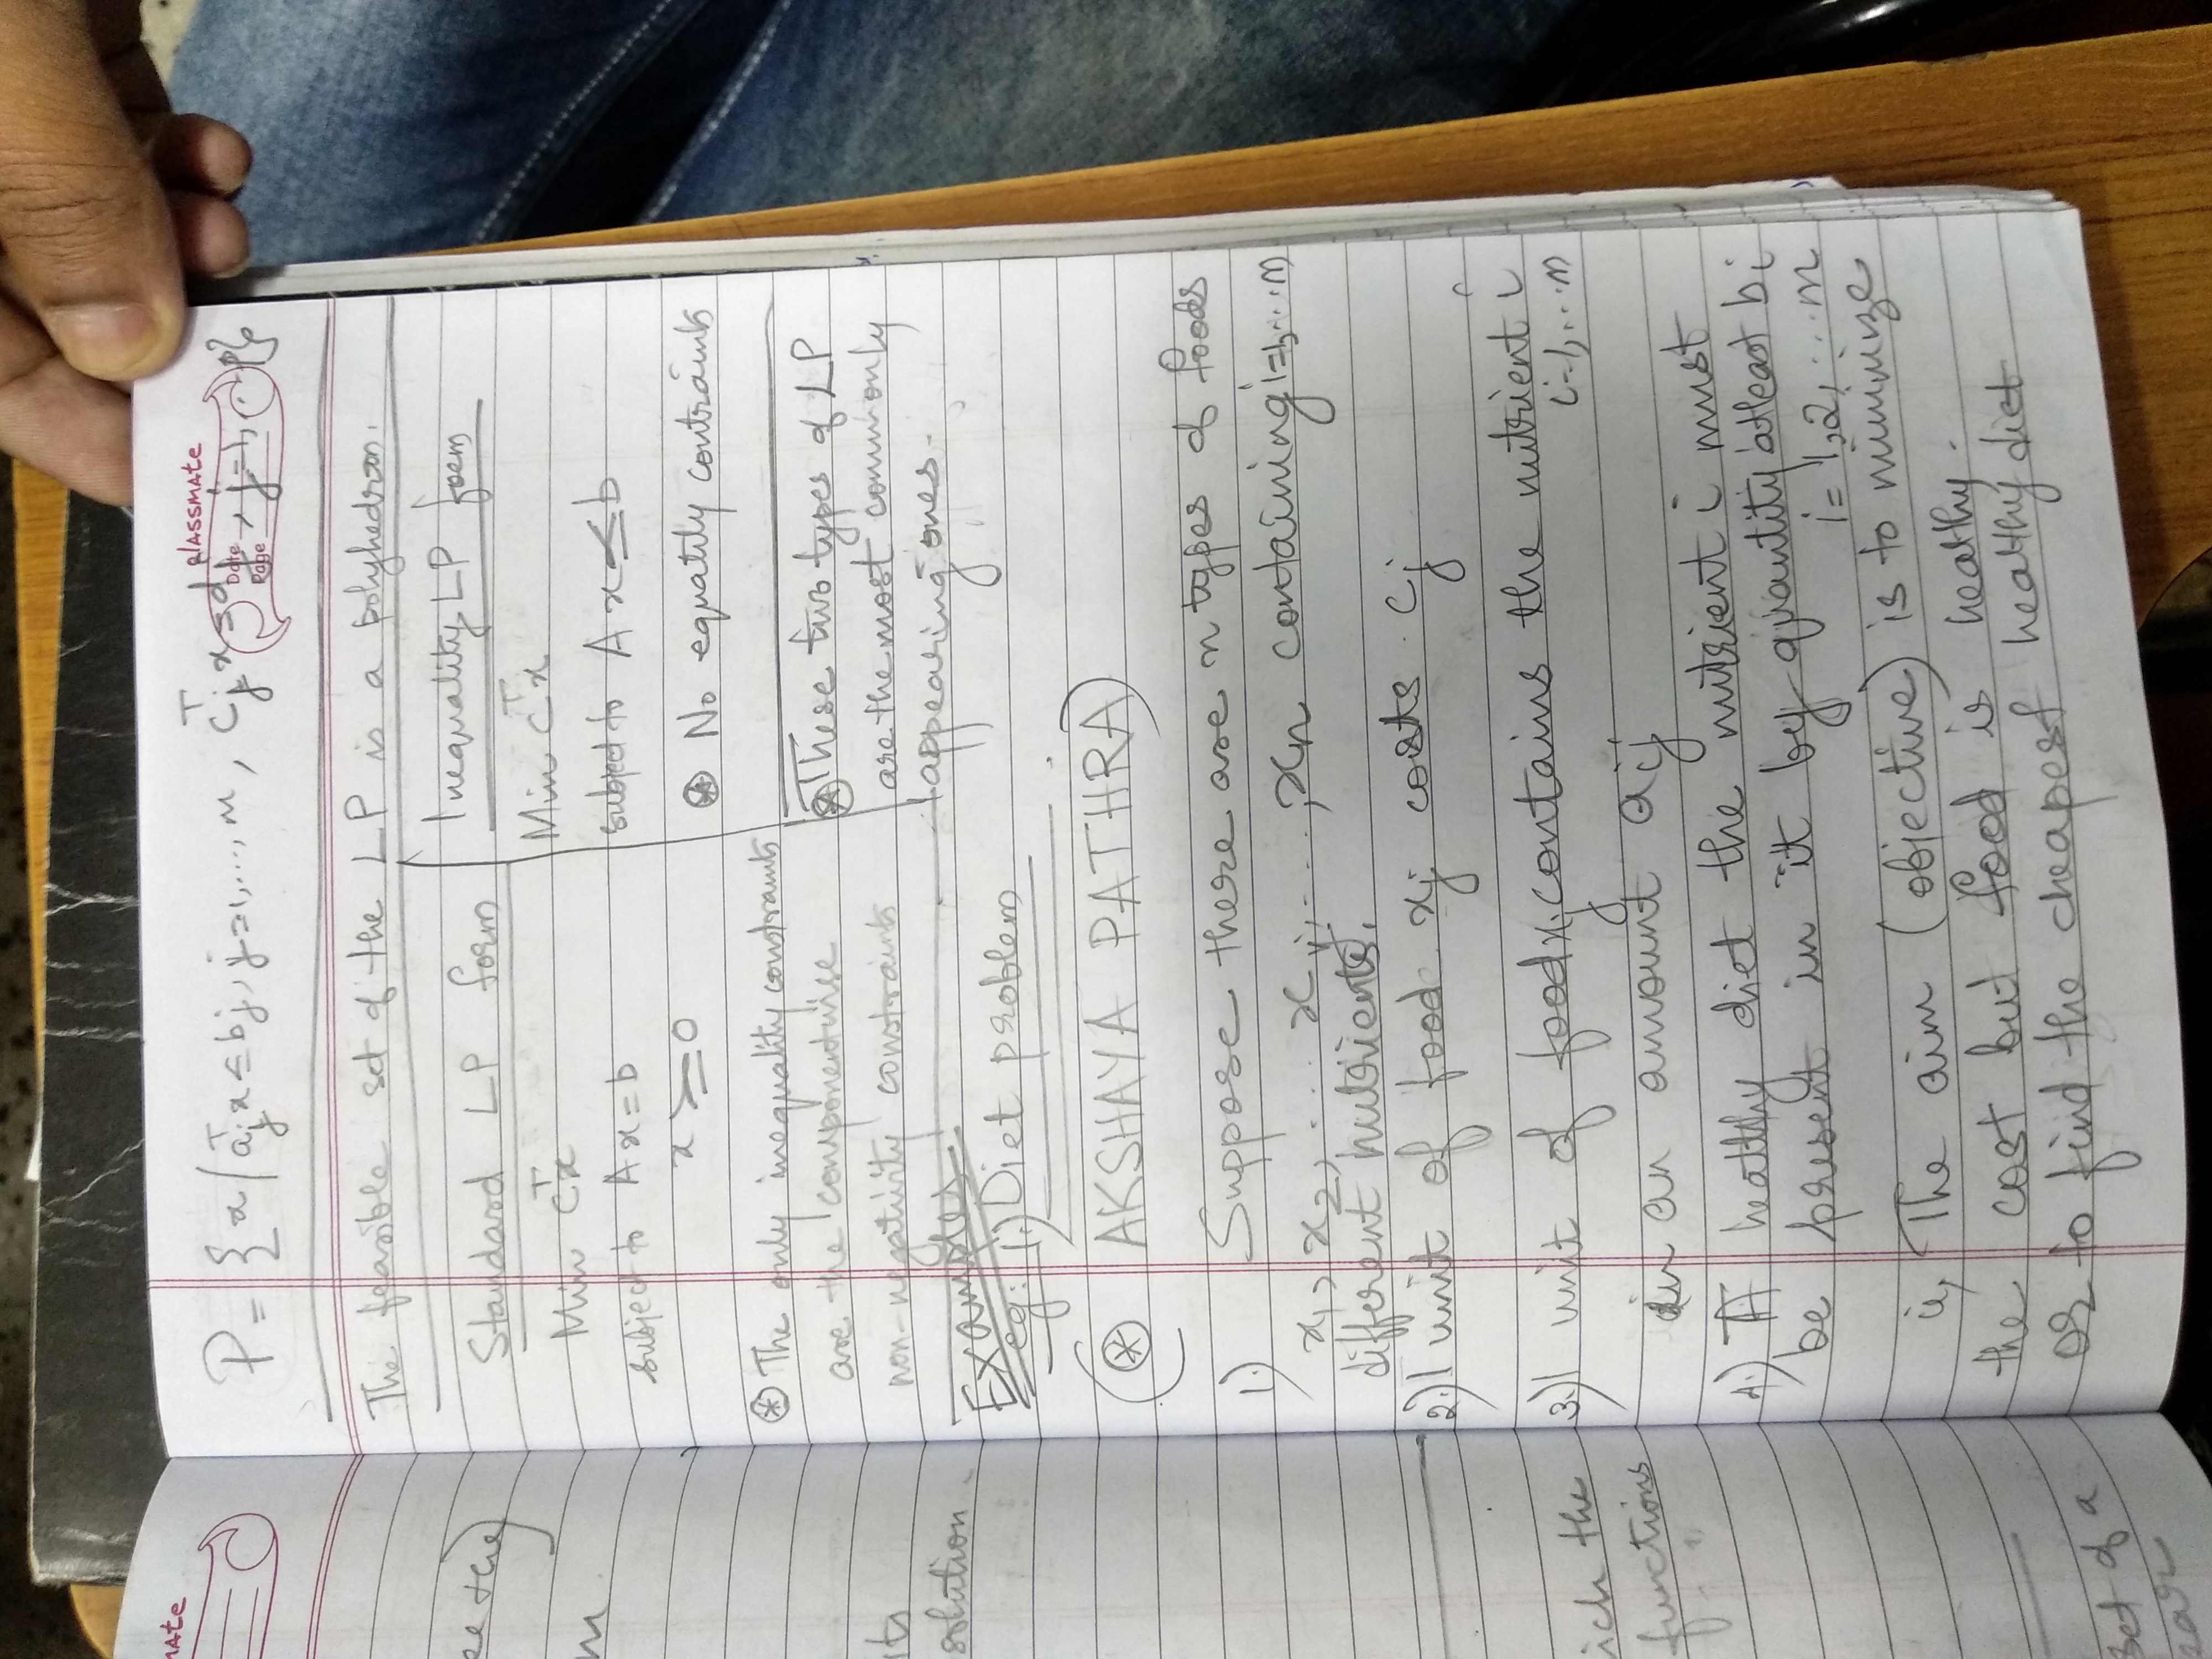 mate
classmate
Date
Page
P = { x / a_j^T x ≤ b_j, j=1,...,m, C_j^T x = d_j, j=1,...p}
The feasible set of the LP is a polyhedron.
Standard LP form
Min C^T x
subject to Ax = b
x ≥ 0
⊛ The only inequality constraints
are the componentwise
non-negativity constraints
Inequality LP foem
Min C^T x
subject to Ax ≤ b
⊛ No equatily contraints
⊛ These two types of LP
are the most commonly
appearing ones.
Examples
eg: 1.) Diet problem
(⊛ AKSHAYA PATHRA)
1.) Suppose there are n types of foods
x1, x2, ... xj, ..., xn containing i=1,...m
different nutrients.
2.) 1 unit of food xj costs cj
3.) 1 unit of food xj contains the nutrient i
i=1,...m
in an amount aij
4.) A healthy diet the nutrient i must
be present in it by quantity atleast bi
i = 1,2,...m
ie, The aim (objective) is to minimize
the cost but food is healthy.
or to find the cheapest healthy diet
ee the)
m.
its
solution
ich the
functions
set of a
ear